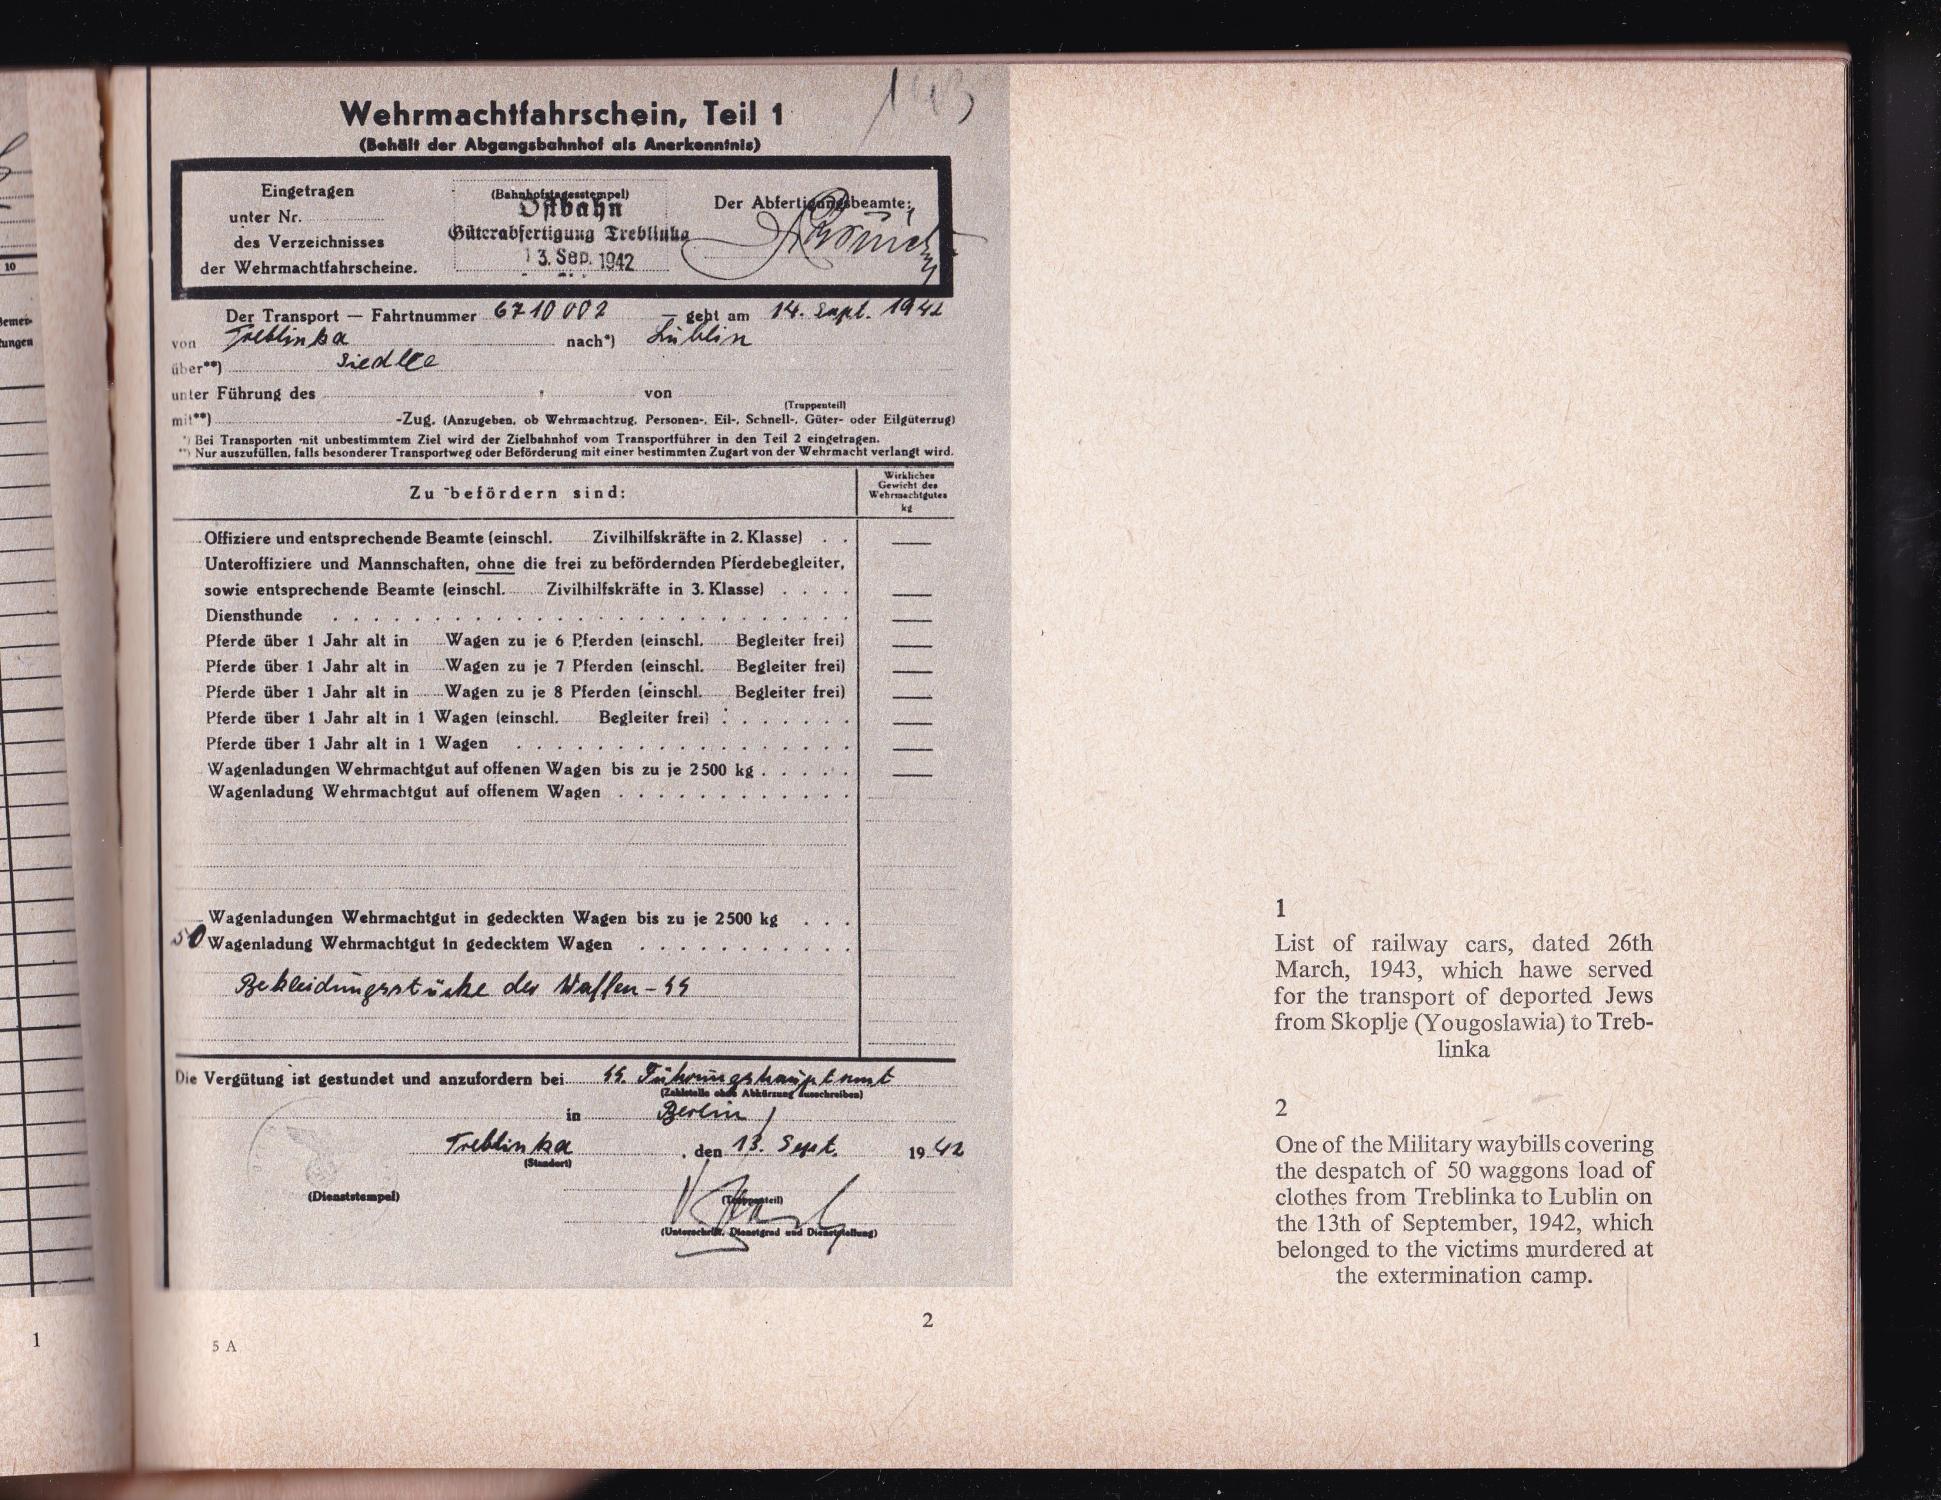 10
Bemer-
tungen
1
Wehrmachtfahrschein, Teil 1
(Behält der Abgangsbahnhof als Anerkenntnis)
Eingetragen
unter Nr.
des Verzeichnisses
der Wehrmachtfahrscheine.
(Bahnhofstagesstempel)
Ostbahn
Güterabfertigung Treblinka
13. Sep. 1942
Der Abfertigungsbeamte:
Der Transport — Fahrtnummer 6710002 — geht am 14. Sept. 1942
von Treblinka nach*) Lublin
über**) Siedlce
unter Führung des von
(Truppenteil)
mit**) -Zug. (Anzugeben, ob Wehrmachtzug, Personen-, Eil-, Schnell-, Güter- oder Eilgüterzug)
*) Bei Transporten mit unbestimmtem Ziel wird der Zielbahnhof vom Transportführer in den Teil 2 eingetragen.
**) Nur auszufüllen, falls besonderer Transportweg oder Beförderung mit einer bestimmten Zugart von der Wehrmacht verlangt wird.
Zu befördern sind:
Wirkliches
Gewicht des
Wehrmachtgutes
kg
Offiziere und entsprechende Beamte (einschl. Zivilhilfskräfte in 2. Klasse) . .
Unteroffiziere und Mannschaften, ohne die frei zu befördernden Pferdebegleiter,
sowie entsprechende Beamte (einschl. Zivilhilfskräfte in 3. Klasse) . . . .
Diensthunde
Pferde über 1 Jahr alt in Wagen zu je 6 Pferden (einschl. Begleiter frei)
Pferde über 1 Jahr alt in Wagen zu je 7 Pferden (einschl. Begleiter frei)
Pferde über 1 Jahr alt in Wagen zu je 8 Pferden (einschl. Begleiter frei)
Pferde über 1 Jahr alt in 1 Wagen (einschl. Begleiter frei)
Pferde über 1 Jahr alt in 1 Wagen
Wagenladungen Wehrmachtgut auf offenen Wagen bis zu je 2500 kg
Wagenladung Wehrmachtgut auf offenem Wagen
Wagenladungen Wehrmachtgut in gedeckten Wagen bis zu je 2500 kg
50 Wagenladung Wehrmachtgut in gedecktem Wagen
Bekleidungsstücke der Waffen-SS
Die Vergütung ist gestundet und anzufordern bei SS. Führungshauptamt
(Zahlstelle ohne Abkürzung ausschreiben)
in Berlin
Treblinka, den 13. Sept. 1942
(Standort)
(Dienststempel)
(Truppenteil)
(Unterschrift, Dienstgrad und Dienststellung)
2
5 A
1
List of railway cars, dated 26th
March, 1943, which hawe served
for the transport of deported Jews
from Skoplje (Yougoslawia) to Treb-
linka
2
One of the Military waybills covering
the despatch of 50 waggons load of
clothes from Treblinka to Lublin on
the 13th of September, 1942, which
belonged to the victims murdered at
the extermination camp.